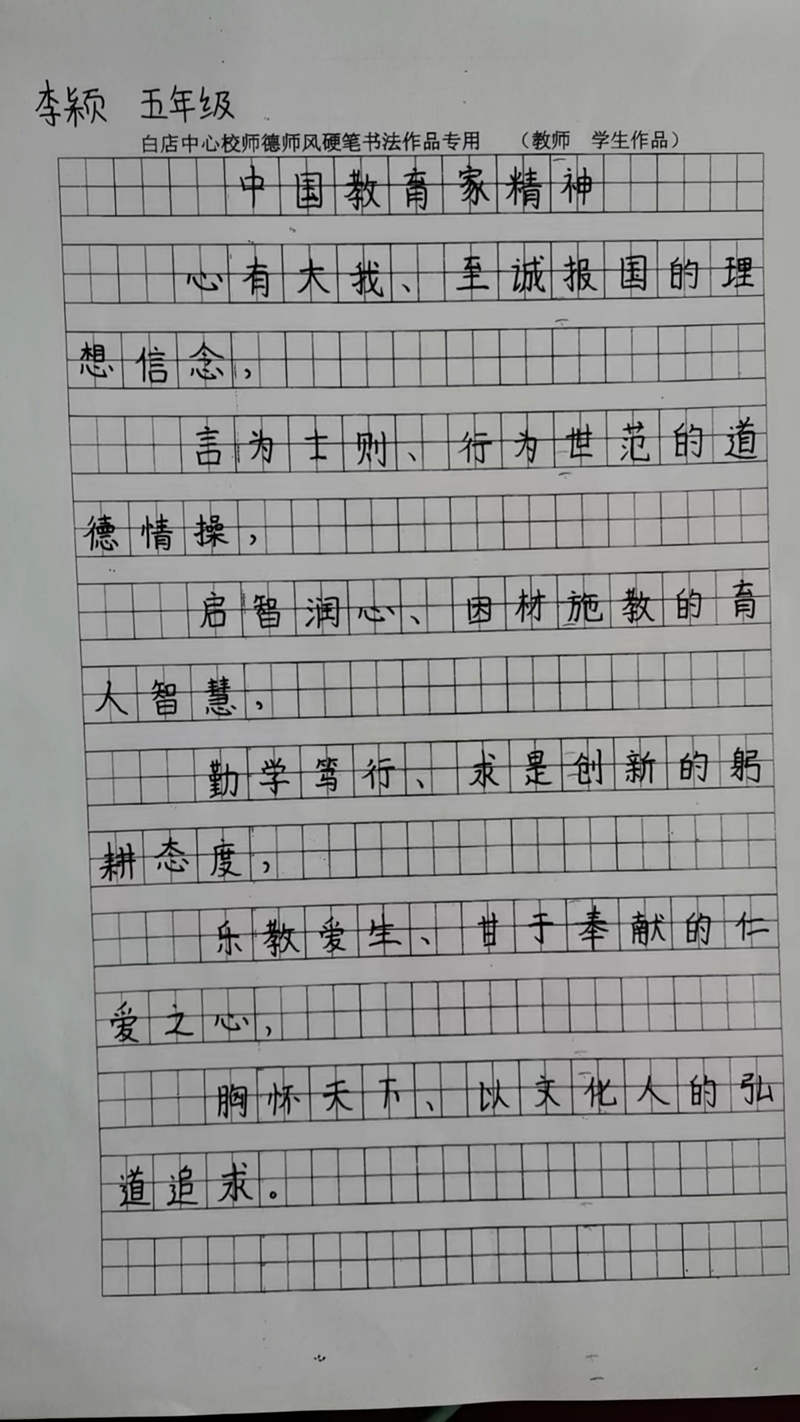 李颖 五年级
白店中心校师德师风硬笔书法作品专用 （教师 学生作品）
中国教育家精神
心有大我、至诚报国的理
想信念，
言为士则、行为世范的道
德情操，
启智润心、因材施教的育
人智慧，
勤学笃行、求是创新的躬
耕态度，
乐教爱生、甘于奉献的仁
爱之心，
胸怀天下、以文化人的弘
道追求。